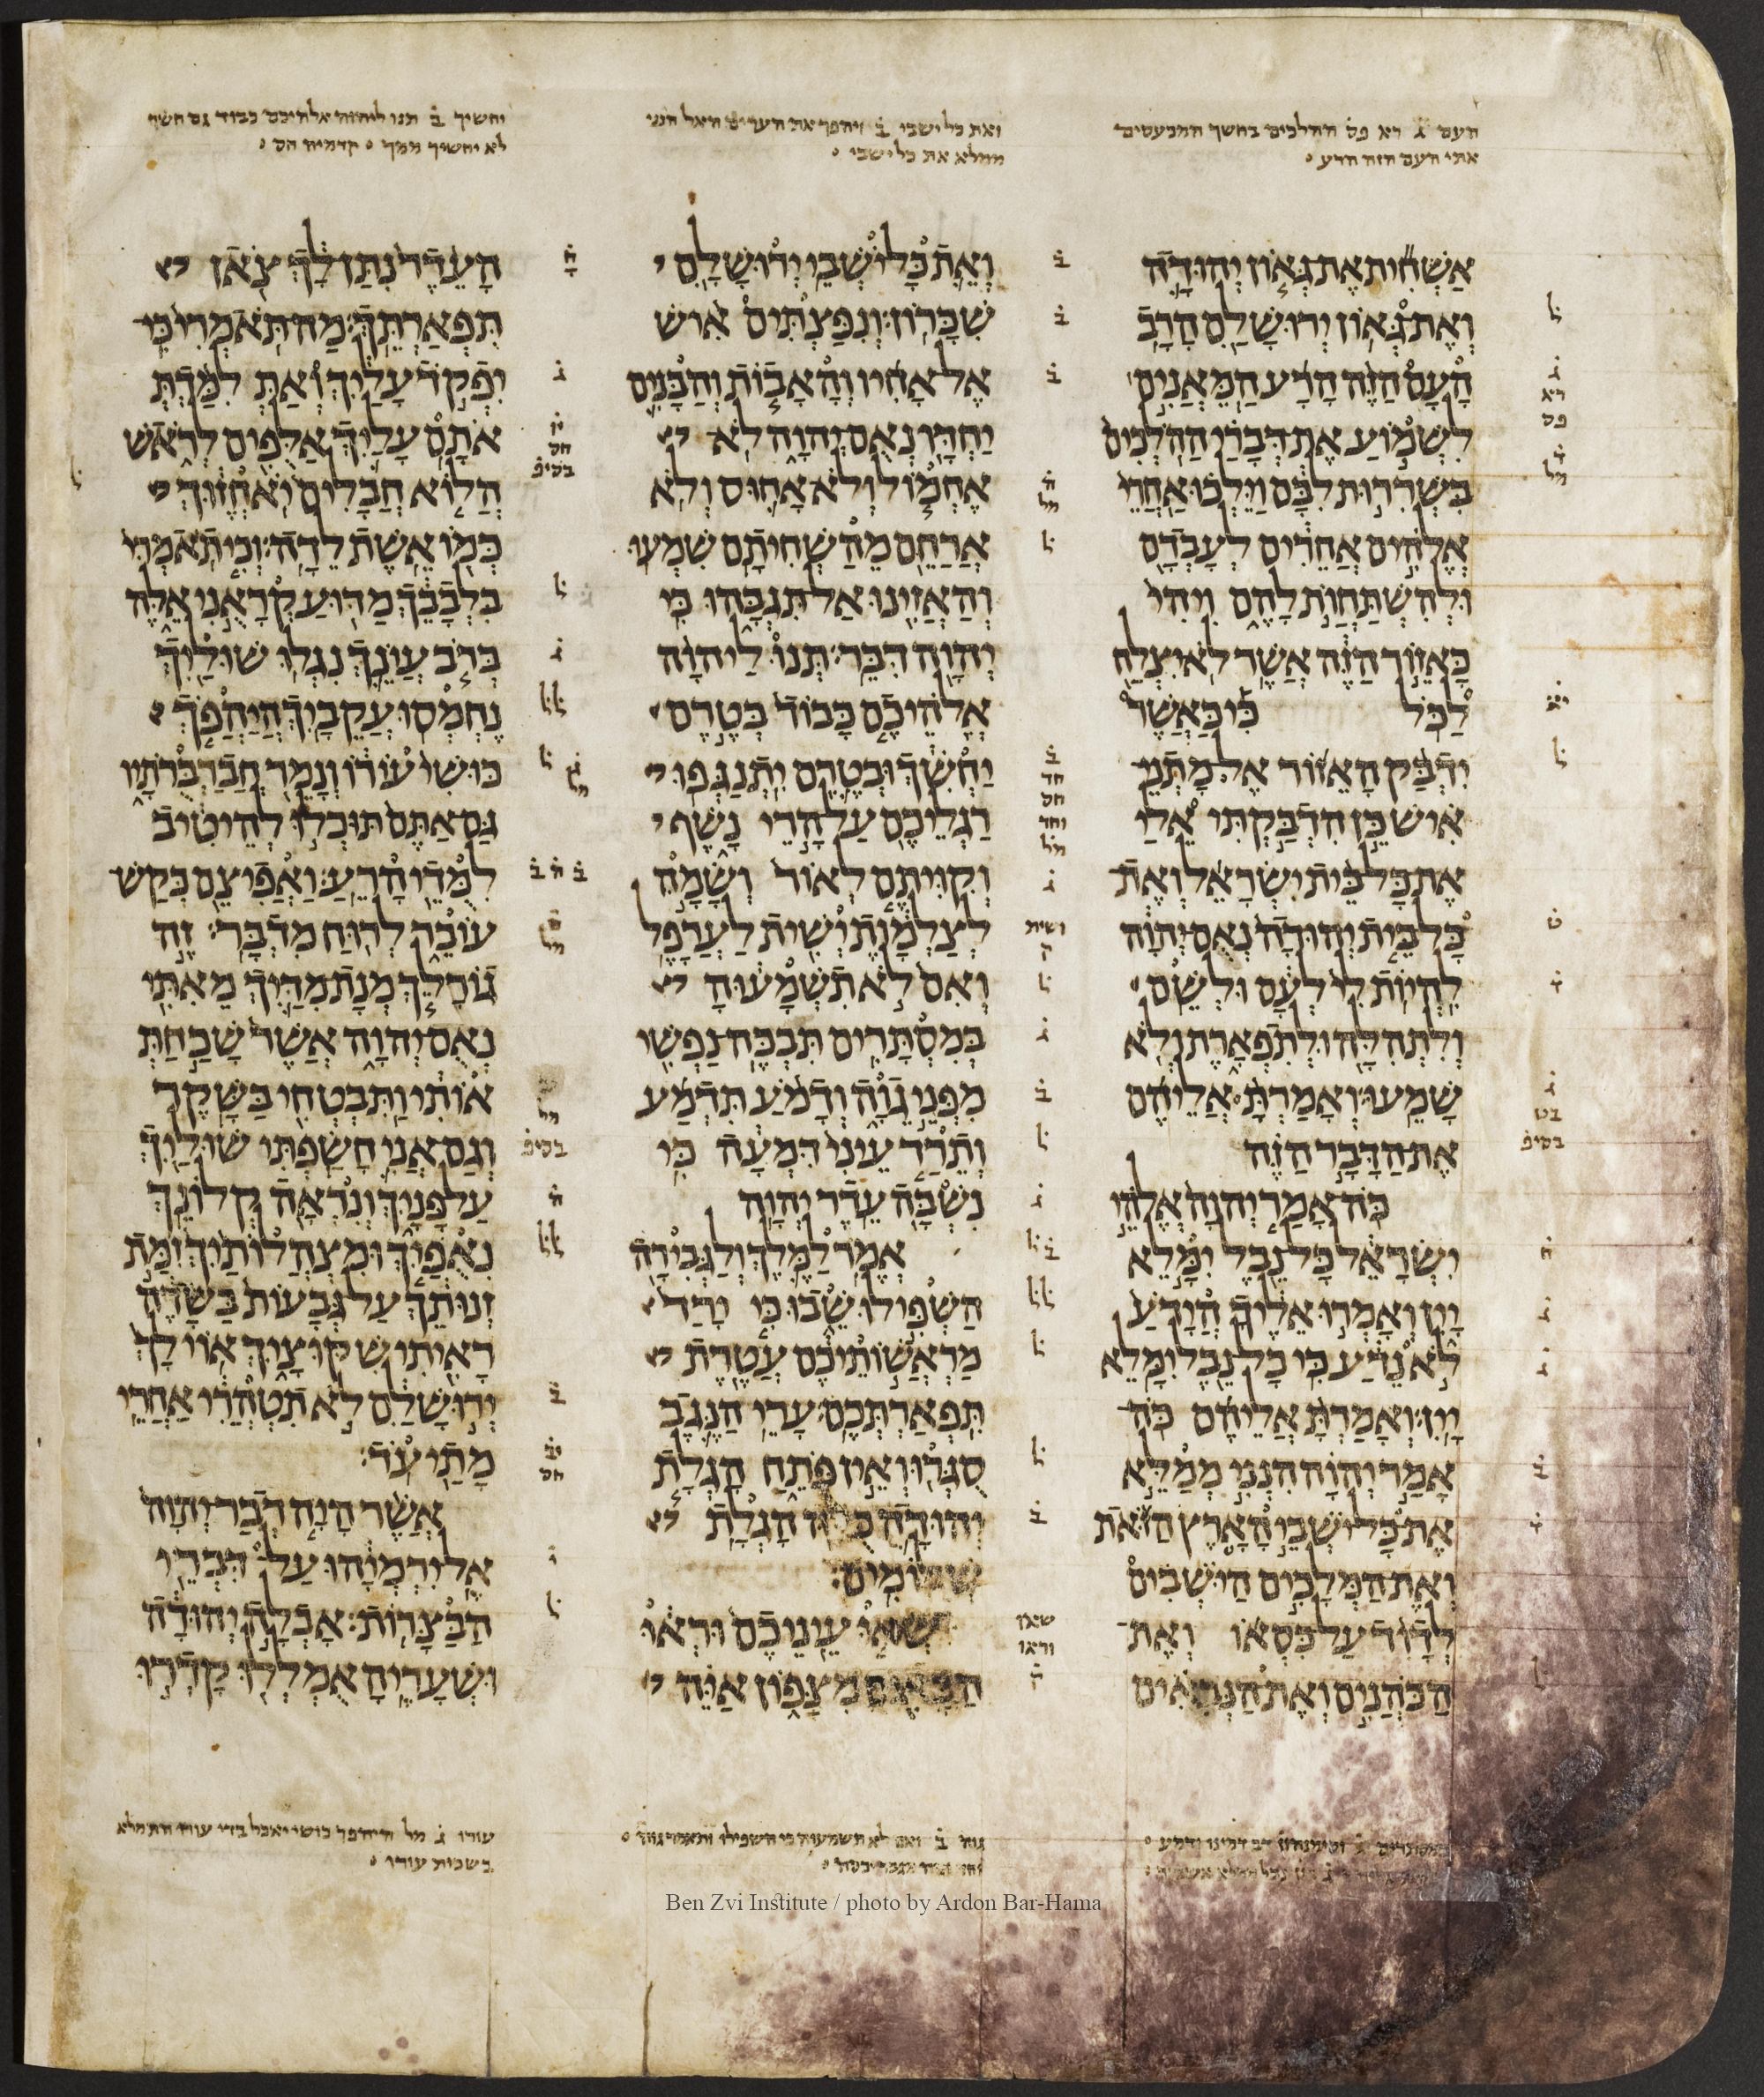 העם ג רא פס ההלכים בחשך המכעסים
אתי העם הזה הרע
ואת כל ישבי ב ויהפך את הערים האל הנני
ממלא את כל ישבי
יחשיך ב תנו ליהוה אלהיכם כבוד גם חשך
לא יחשיך ממך קדמיה חס
אשחית את גאון יהודה
ואת גאון ירושלם הרב
העם הזה הרע המאנים
לשמוע את דברי ההלכים
בשררות לבם וילכו אחרי
אלהים אחרים לעבדם
ולהשתחות להם ויהי
כאזור הזה אשר לא יצלח
לכל כי כאשר
ידבק האזור אל מתני
איש כן הדבקתי אלי
את כל בית ישראל ואת
כל בית יהודה נאם יהוה
להיות לי לעם ולשם
ולתהלה ולתפארת ולא
שמעו׃ ואמרת אליהם
את הדבר הזה
כה אמר יהוה אלהי
ישראל כל נבל ימלא
יין ואמרו אליך הידע
לא נדע כי כל נבל ימלא
יין׃ ואמרת אליהם כה
אמר יהוה הנני ממלא
את כל ישבי הארץ הזאת
ואת המלכים הישבים
לדוד על כסאו ואת
הכהנים ואת הנביאים
ואת כל ישבי ירושלם
שכרון׃ ונפצתים איש
אל אחיו והאבות והבנים
יחדו נאם יהוה לא
אחמול ולא אחוס ולא
ארחם מהשחיתם׃ שמעו
והאזינו אל תגבהו כי
יהוה דבר׃ תנו ליהוה
אלהיכם כבוד בטרם
יחשך ובטרם יתנגפו
רגליכם על הרי נשף
וקויתם לאור ושמה
לצלמות ושית לערפל׃
ואם לא תשמעוה
במסתרים תבכה נפשי
מפני גוה ודמע תדמע
ותרד עיני דמעה כי
נשבה עדר יהוה
אמר למלך ולגבירה
השפילו שבו כי ירד
מראשותיכם עטרת
תפארתכם׃ ערי הנגב
סגרו ואין פתח הגלת
יהודה כלה הגלת
שלומים׃
שאו עיניכם וראו
הבאים מצפון איה
העדר נתן לך צאן
תפארתך׃ מה תאמרי כי
יפקד עליך ואת למדת
אתם עליך אלפים לראש
הלוא חבלים יאחזוך
כמו אשת לדה׃ וכי תאמרי
בלבבך מדוע קראני אלה
ברב עונך נגלו שוליך
נחמסו עקביך׃ היהפך
כושי עורו ונמר חברברתיו
גם אתם תוכלו להיטיב
למדי הרע׃ ואפיצם כקש
עובר לרוח מדבר׃ זה
גורלך מנת מדיך מאתי
נאם יהוה אשר שכחת
אותי ותבטחי בשקר׃
וגם אני חשפתי שוליך
על פניך ונראה קלונך׃
נאפיך ומצהלותיך זמת
זנותך על גבעות בשדה
ראיתי שקוציך אוי לך
ירושלם לא תטהרי אחרי
מתי עד׃
אשר היה דבר יהוה
אל ירמיהו על דברי
הבצרות׃ אבלה יהודה
ושעריה אמללו קדרו
גוה ב ואם לא תשמעוה כי השפילו ותאמר גוה
עורו ג מל היהפך כושי יאכל בדי עורו התמלא
בשכות עורו
Ben Zvi Institute / photo by Ardon Bar-Hama